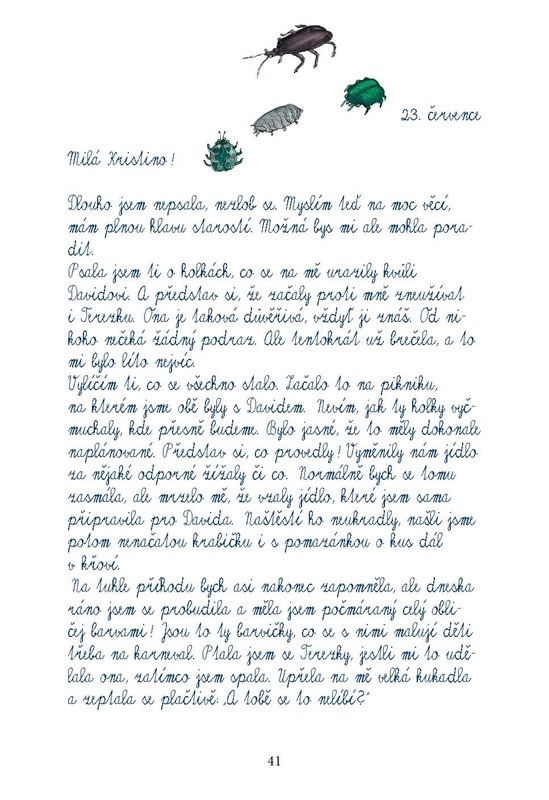 23. července
Milá Kristino!
Dlouho jsem nepsala, nezlob se. Myslím teď na moc věcí,
mám plnou hlavu starostí. Možná bys mi ale mohla pora-
dit.
Psala jsem ti o holkách, co se na mě urazily kvůli
Davidovi. A představ si, že začaly proti mně zneužívat
i Terezku. Ona je taková důvěřivá, vždyť ji znáš. Od ni-
koho nečeká žádný podraz. Ale tentokrát už brečela, a to
mi bylo líto nejvíc.
Vylíčím ti, co se všechno stalo. Začalo to na pikniku,
na kterém jsme obě byly s Davidem. Nevím, jak ty holky vyč-
muchaly, kde přesně budem. Bylo jasné, že to měly dokonale
naplánované. Představ si, co provedly! Vyměnily nám jídlo
za nějaké odporné žížaly či co. Normálně bych se tomu
zasmála, ale mrzelo mě, že vzaly jídlo, které jsem sama
připravila pro Davida. Naštěstí ho neukradly, našli jsme
potom nenačatou krabičku i s pomazánkou o kus dál
v křoví.
Na tuhle příhodu bych asi nakonec zapomněla, ale dneska
ráno jsem se probudila a měla jsem počmáraný celý obli-
čej barvami! Jsou to ty barvičky, co se s nimi malují děti
třeba na karneval. Ptala jsem se Terezky, jestli mi to udě-
lala ona, zatímco jsem spala. Upřela na mě velká kukadla
a zeptala se plačtivě: „A tobě se to nelíbí?“
41